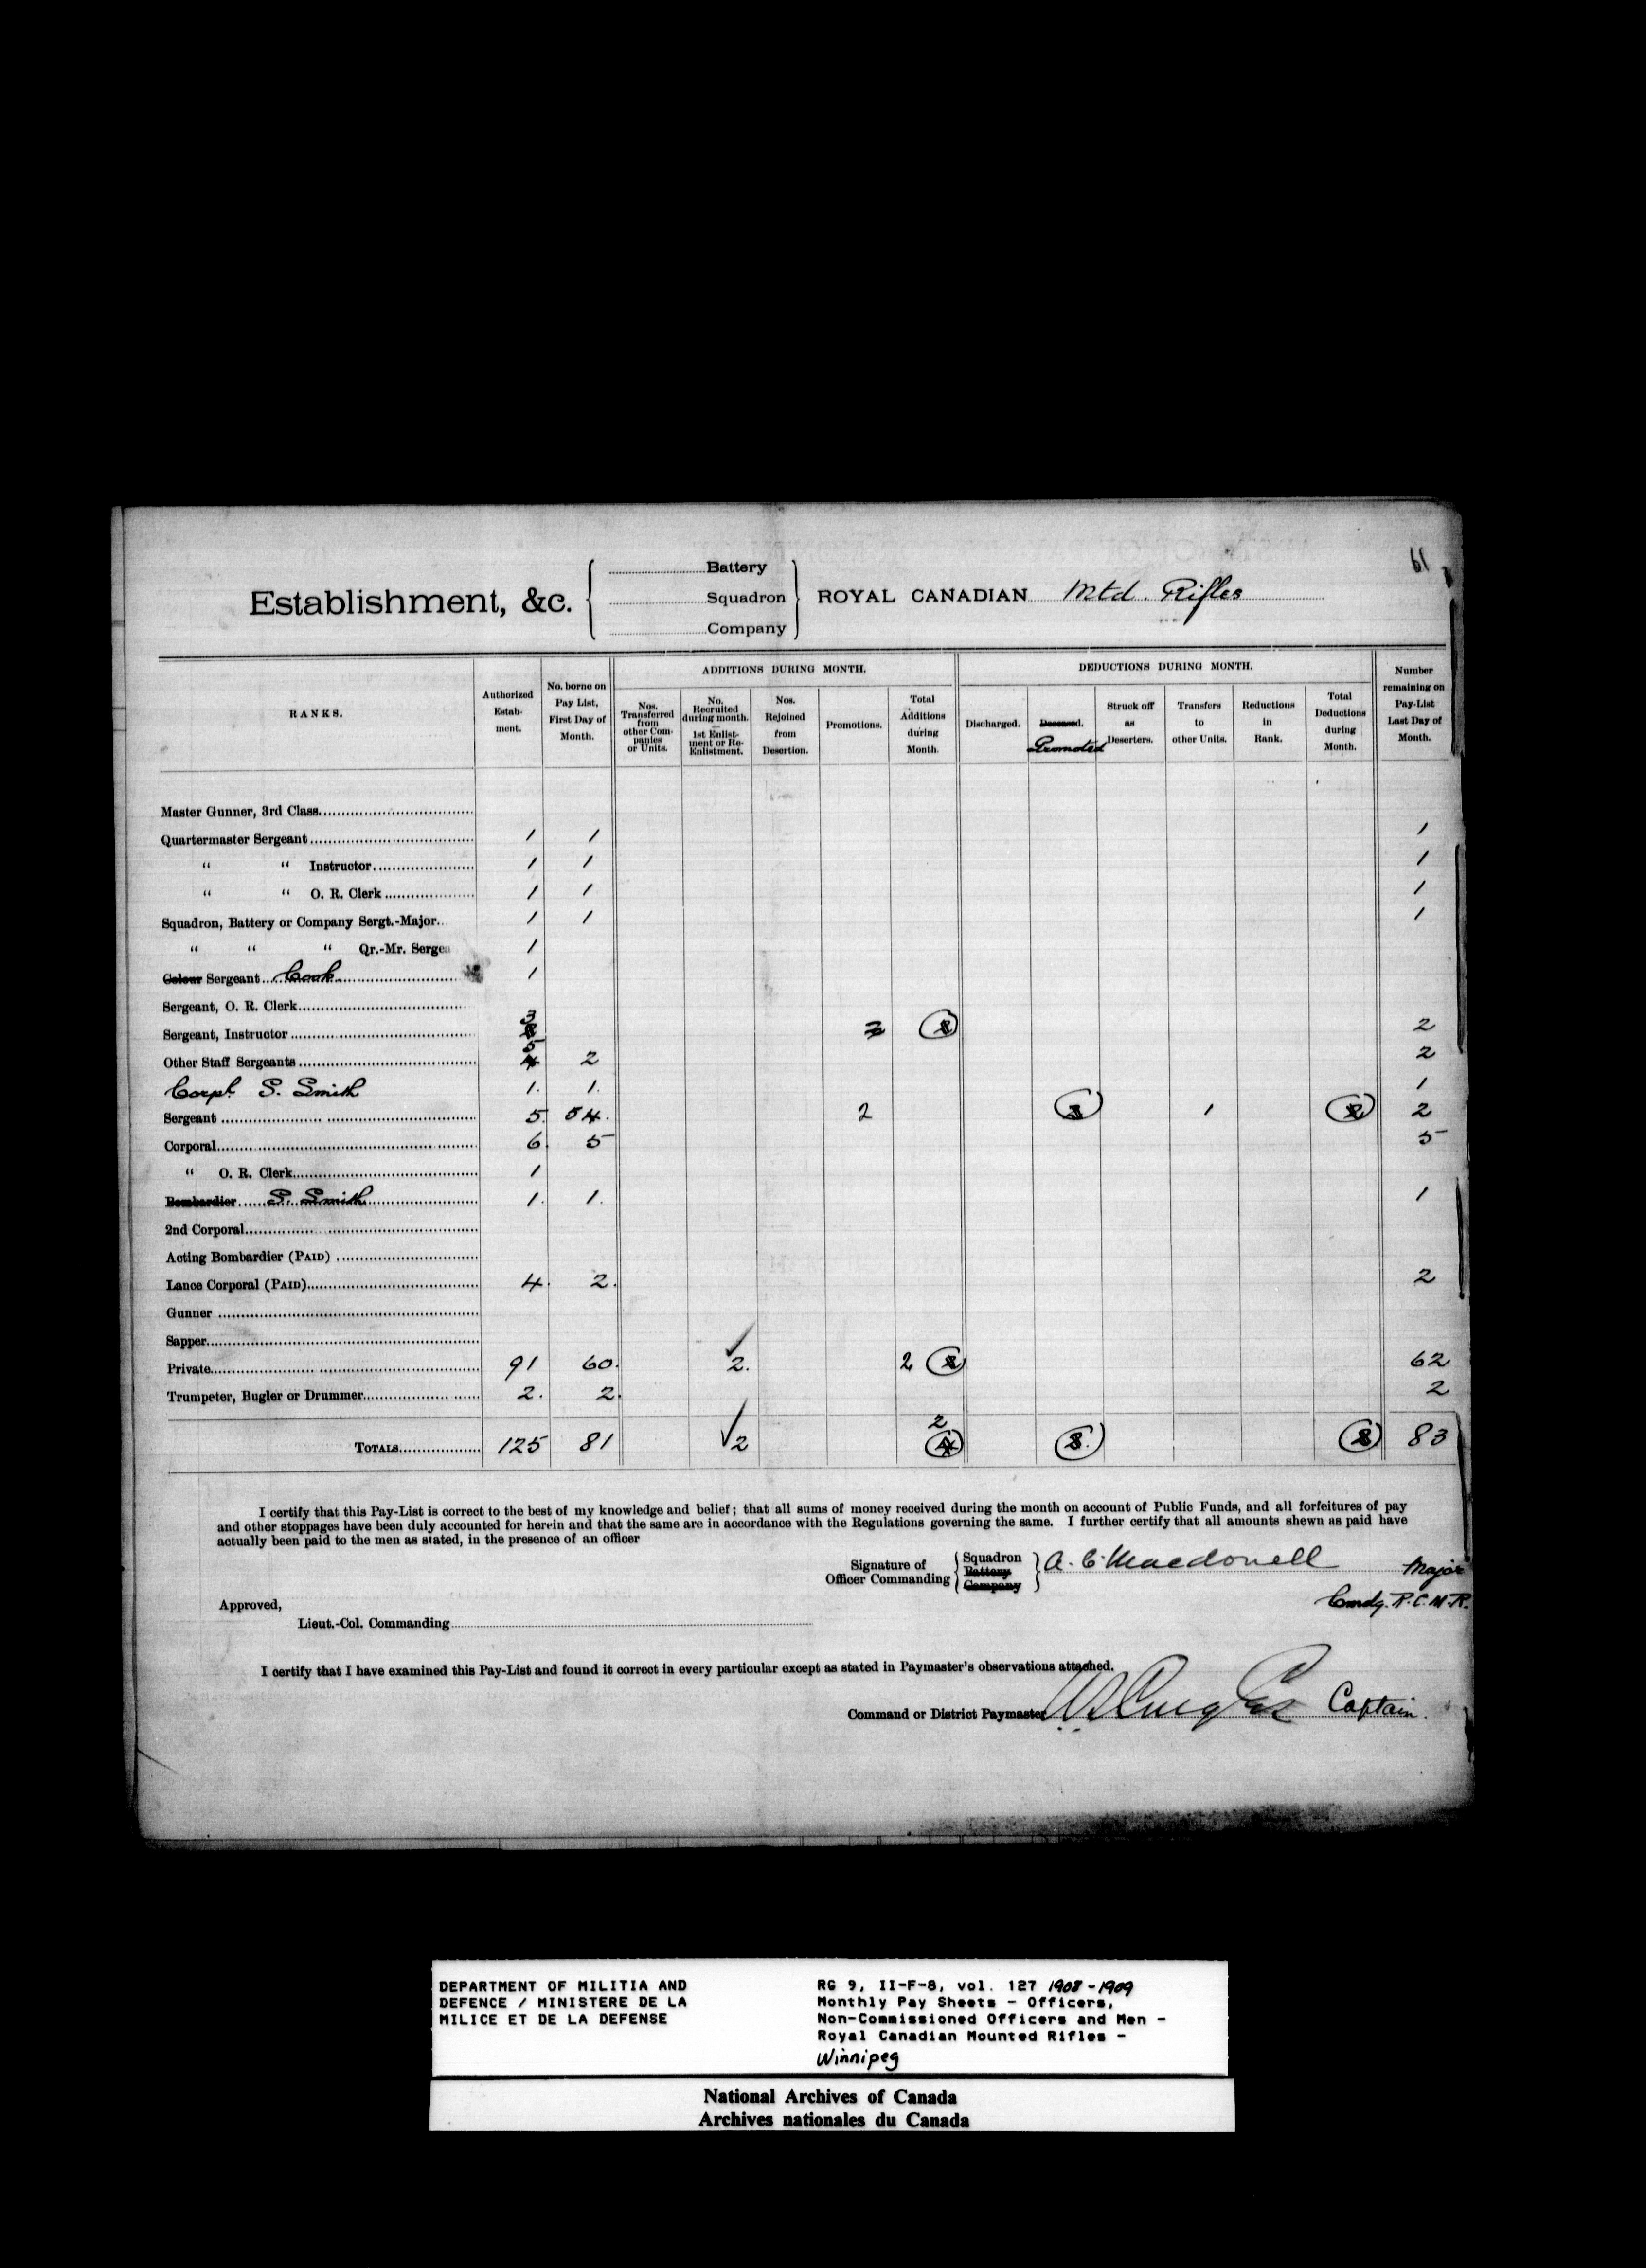 61
Establishment, &c. { Battery Squadron Company } ROYAL CANADIAN Mtd. Rifles
RANKS.
Authorized Establishment.
No. borne on Pay List, First Day of Month.
ADDITIONS DURING MONTH.
Nos. Transferred from other Companies or Units.
No. Recruited during month. — 1st Enlistment or Re-Enlistment.
Nos. Rejoined from Desertion.
Promotions.
Total Additions during Month.
DEDUCTIONS DURING MONTH.
Discharged.
Deceased. Promoted
Struck off as Deserters.
Transfers to other Units.
Reductions in Rank.
Total Deductions during Month.
Number remaining on Pay-List Last Day of Month.
Master Gunner, 3rd Class
Quartermaster Sergeant 1 1 1
" " Instructor 1 1 1
" " O. R. Clerk 1 1 1
Squadron, Battery or Company Sergt.-Major 1 1 1
" " " Qr.-Mr. Serge 1
Colour Sergeant Cook 1
Sergeant, O. R. Clerk
Sergeant, Instructor 3 2 2
Other Staff Sergeants 5 4 2 2
Corpl. S. Smith 1. 1. 1
Sergeant 5. 5 4. 2 1 2
Corporal 6. 5 5
" O. R. Clerk 1
Bombardier S. Smith 1. 1. 1
2nd Corporal
Acting Bombardier (PAID)
Lance Corporal (PAID) 4. 2. 2
Gunner
Sapper
Private 91 60. 2. 2 62
Trumpeter, Bugler or Drummer 2. 2. 2
TOTALS 125 81 2 2 4 83
I certify that this Pay-List is correct to the best of my knowledge and belief; that all sums of money received during the month on account of Public Funds, and all forfeitures of pay
and other stoppages have been duly accounted for herein and that the same are in accordance with the Regulations governing the same. I further certify that all amounts shewn as paid have
actually been paid to the men as stated, in the presence of an officer
Signature of Officer Commanding { Squadron Battery Company } A. C. Macdonell Major
Cmdg. R.C.M.R.
Approved,
Lieut.-Col. Commanding
I certify that I have examined this Pay-List and found it correct in every particular except as stated in Paymaster's observations attached.
Command or District Paymaster Captain.
DEPARTMENT OF MILITIA AND
DEFENCE / MINISTERE DE LA
MILICE ET DE LA DEFENSE
RG 9, II-F-8, vol. 127 1908-1909
Monthly Pay Sheets - Officers,
Non-Commissioned Officers and Men -
Royal Canadian Mounted Rifles -
Winnipeg
National Archives of Canada
Archives nationales du Canada